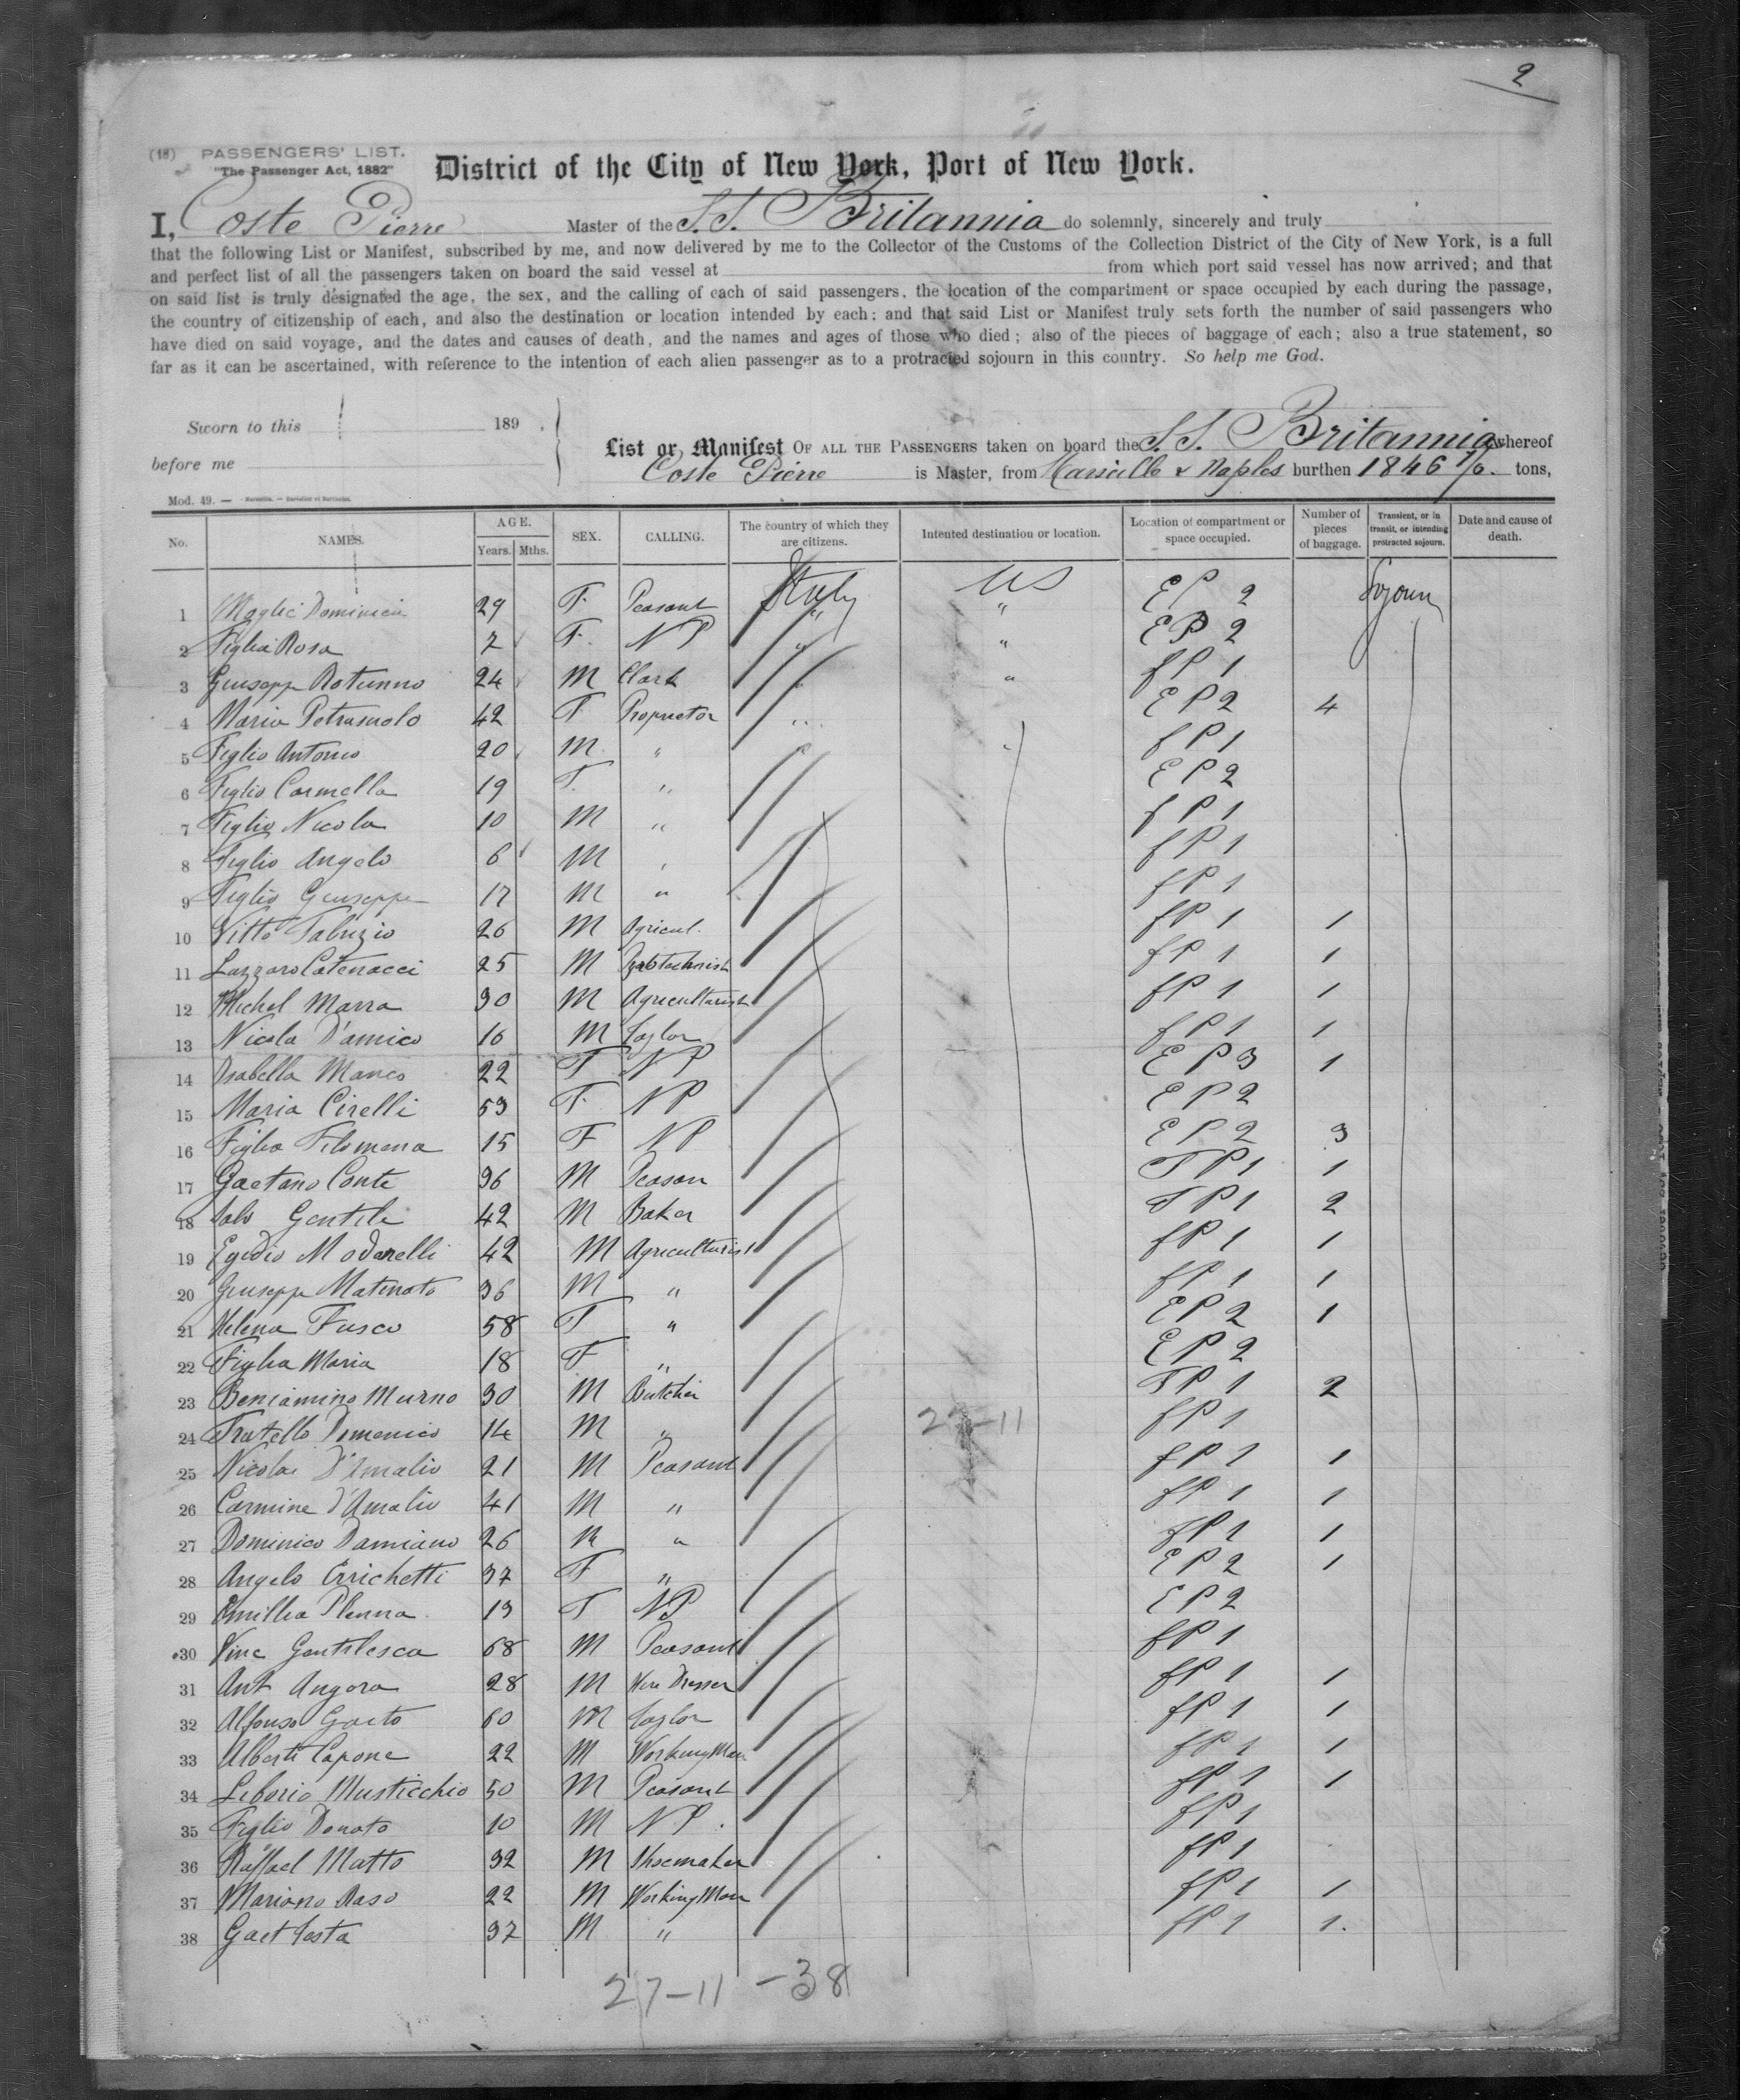 2
(18) PASSENGERS' LIST.
"The Passenger Act, 1882"
District of the City of New York, Port of New York.
I, Coste Pierre Master of the S.S. Britannia do solemnly, sincerely and truly
that the following List or Manifest, subscribed by me, and now delivered by me to the Collector of the Customs of the Collection District of the City of New York, is a full
and perfect list of all the passengers taken on board the said vessel at from which port said vessel has now arrived; and that
on said list is truly designated the age, the sex, and the calling of each of said passengers, the location of the compartment or space occupied by each during the passage,
the country of citizenship of each, and also the destination or location intended by each; and that said List or Manifest truly sets forth the number of said passengers who
have died on said voyage, and the dates and causes of death, and the names and ages of those who died; also of the pieces of baggage of each; also a true statement, so
far as it can be ascertained, with reference to the intention of each alien passenger as to a protracted sojourn in this country. So help me God.
Sworn to this 189 .
before me
List or Manifest OF ALL THE PASSENGERS taken on board the S.S. Britannia whereof
Coste Pierre is Master, from Marseille & Naples burthen 1846 tons,
Mod. 49. —
No. NAMES. AGE. Years. Mths. SEX. CALLING. The country of which they are citizens. Intented destination or location. Location of compartment or space occupied. Number of pieces of baggage. Transient, or in transit, or intending protracted sojourn. Date and cause of death.
1 Moglie Dominica 29 F. Peasant Italy US EP 2 Sojourn
2 Figlia Rosa 7 F. NP " " EP 2
3 Giuseppe Rotunno 24 M Clark " " fP 1
4 Maria Petrasuolo 42 F Proprietor " " EP 2 4
5 Figlio Antonio 20 M. " " " fP 1
6 Figlio Carmella 19 F. " EP 2
7 Figlio Nicola 10 M " fP 1
8 Figlio Angelo 6 M " fP 1
9 Figlio Giuseppe 17 M " fP 1
10 Vitto Fabrizio 26 M Agricul. fP 1 1
11 Lazzaro Catenacci 25 M fP 1 1
12 Michel Marra 30 M Agriculturist fP 1 1
13 Nicola D'amico 16 M Taylor fP 1 1
14 Isabella Manes 22 F NP EP 3 1
15 Maria Cirelli 53 F. NP EP 2
16 Figlia Filomena 15 F NP EP 2 3
17 Gaetano Conte 36 M Peason FP 1 1
18 Salv Gentile 42 M Baker FP 1 2
19 Egidio Modarelli 42 M Agriculturist fP 1 1
20 Giuseppe Matinato 36 M " fP 1 1
21 Helena Fusco 58 F " EP 2 1
22 Figlia Maria 18 F " EP 2
23 Beniamino Murno 30 M Butcher FP 1 2
24 Fratello Domenico 14 M " 27-11 fP 1
25 Nicola D'Amalio 21 M Peasant fP 1 1
26 Carmine d'Amalio 41 M " fP 1 1
27 Dominico Damiano 26 M " fP 1 1
28 Angelo Errichetti 37 F " EP 2 1
29 Emillia Plenna 13 F NP EP 2
30 Vinc Gentilesca 68 M Peasant fP 1
31 Ant Angora 28 M Here Dresser fP 1 1
32 Alfonso Gaeto 60 M Taylor fP 1 1
33 Alberti Capone 22 M WorkingMan fP 1 1
34 Liborio Musticchio 50 M Peasant fP 1 1
35 Figlio Donato 10 M NP. fP 1
36 Raffael Matto 32 M Shoemaker fP 1
37 Mariano Raso 22 M WorkingMan fP 1 1
38 Gaet Testa 37 M " fP 1 1.
27-11 -38